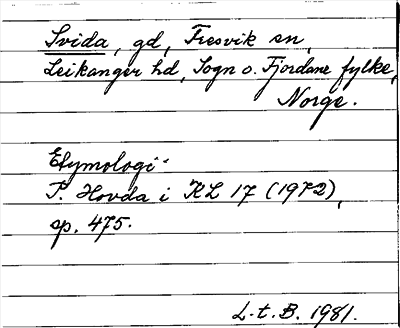 Svida, gd, Fresvik sn,
Leikanger hd, Sogn o. Fjordane fylke,
Norge.
Etymologi:
P. Hovda i KL 17 (1972),
sp. 475.
L.t.B. 1981.